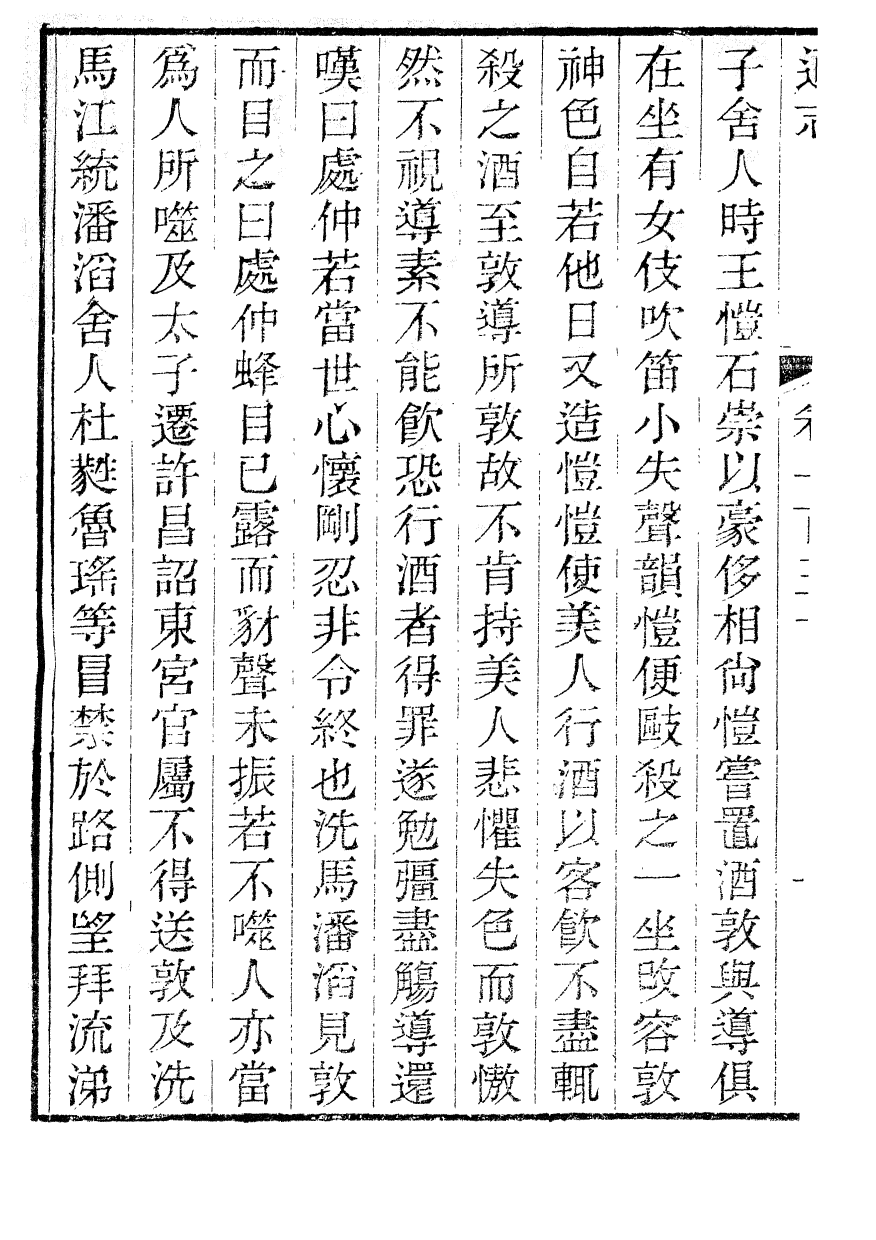 子舍人時王愷石崇以豪侈相尙愷嘗置酒敦與導俱
在坐有女伎吹笛小失聲韻愷便毆殺之一坐改容敦
神色自若他日又造愷愷使美人行酒以客飮不盡輒
殺之酒至敦導所敦故不肯持美人悲懼失色而敦傲
然不視導素不能飮恐行酒者得罪遂勉彊盡觴導還
嘆曰處仲若當世心懷剛忍非令終也洗馬潘滔見敦
而目之曰處仲蜂目已露而豺聲未振若不噬人亦當
爲人所噬及太子遷許昌詔東宮官屬不得送敦及洗
馬江統潘滔舍人杜蕤魯瑤等冒禁於路側望拜流涕